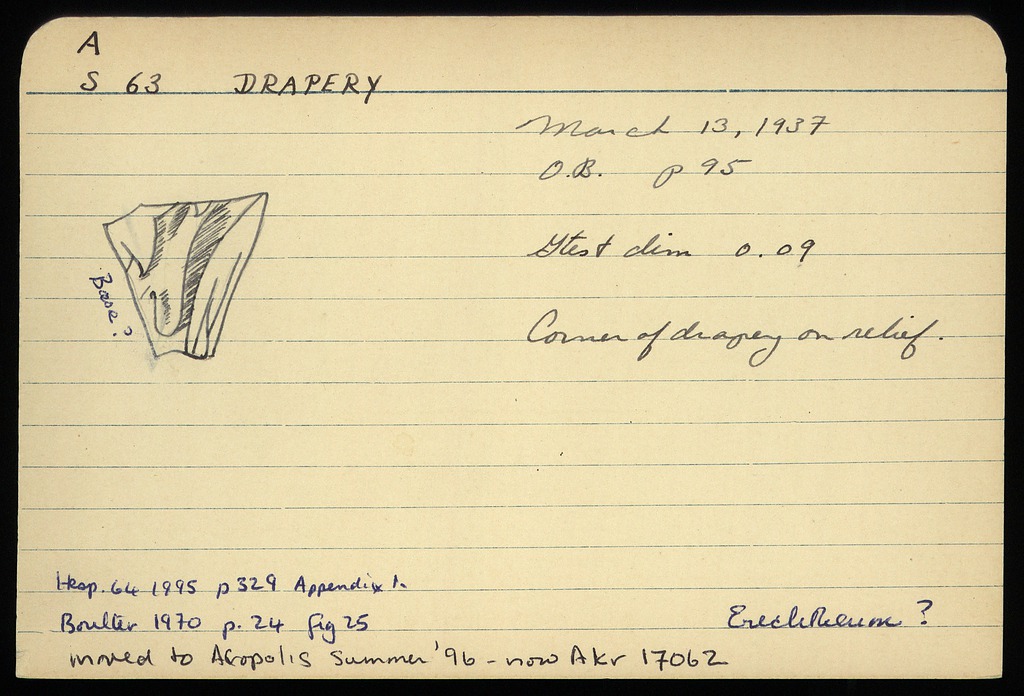 A
S 63 DRAPERY
March 13, 1937
O.B. p 95
Gtest dim 0.09
Base?
Corner of drapery on relief.
Hesp. 64 1995 p 329 Appendix 1.
Boulter 1970 p. 24 fig 25
Erechtheum ?
moved to Acropolis Summer '96 - now Akr 17062